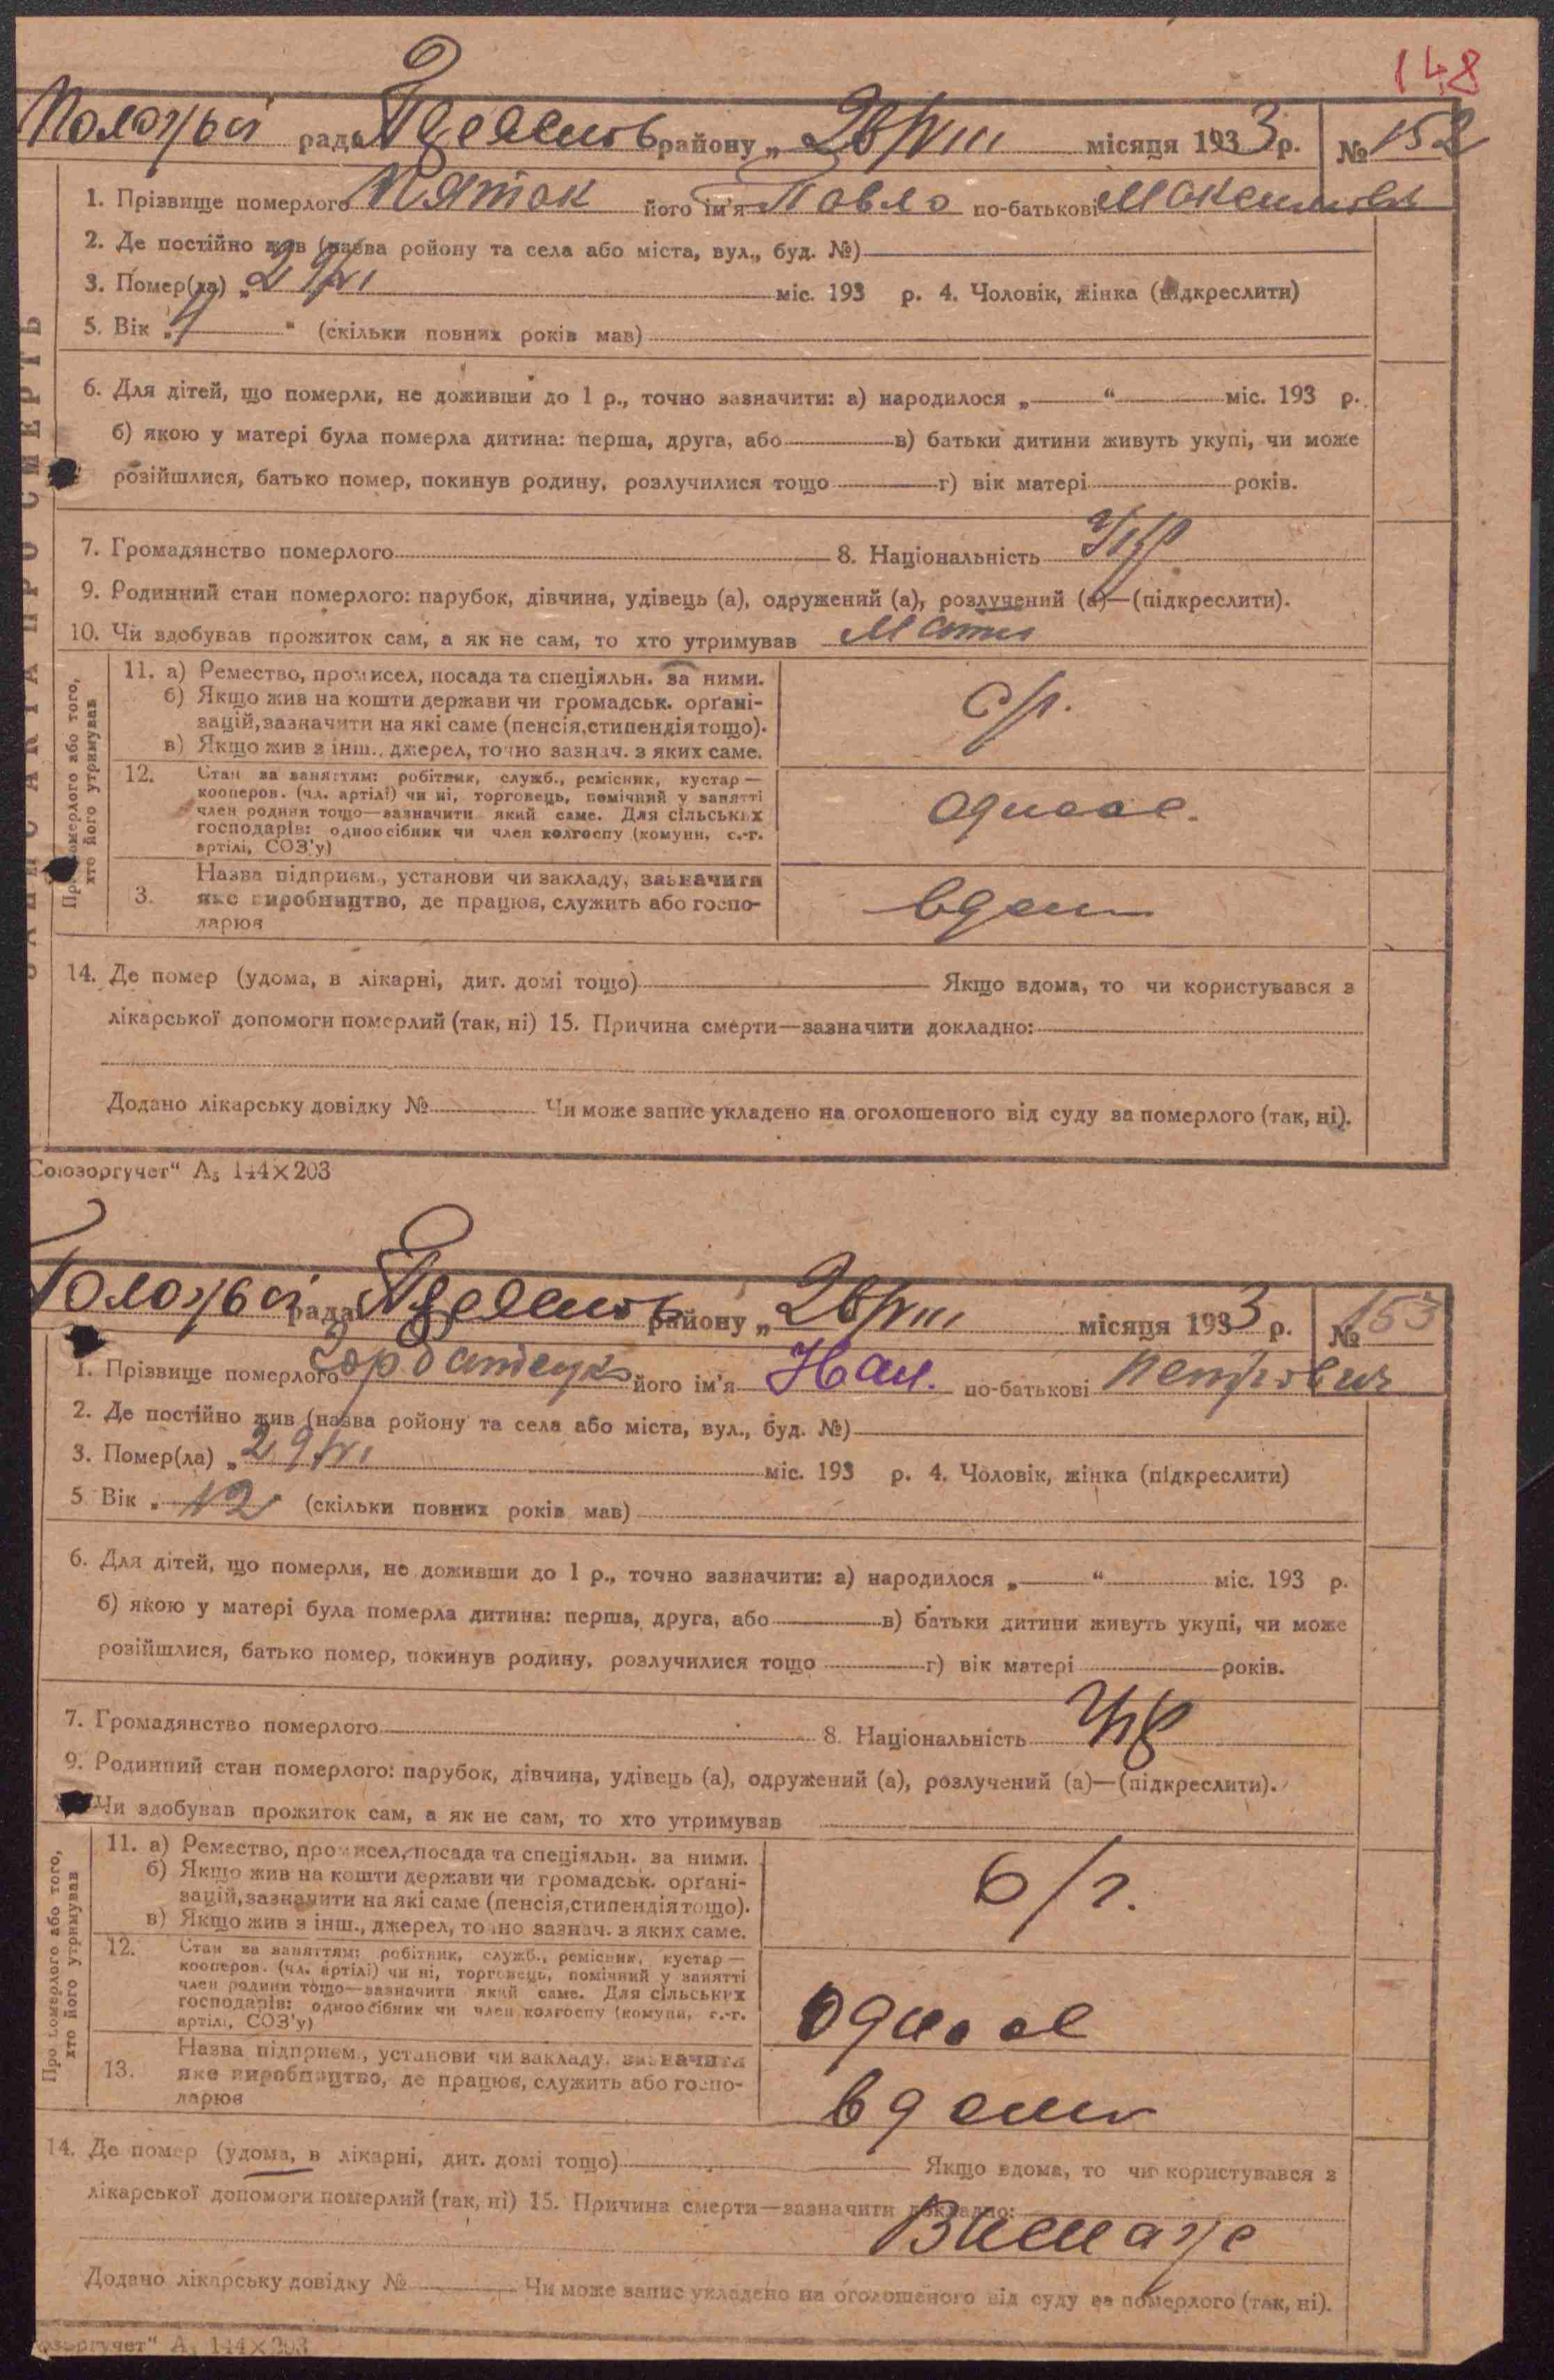 148
рада району „ 28/VIII місяця 1933 р. № 152
1. Прізвище померлого Пяток його ім'я Павло по-батькові
2. Де постійно жив (назва ройону та села або міста, вул., буд. №)
3. Помер(ла) „ 29/VI міс. 193 р. 4. Чоловік, жінка (підкреслити)
5. Вік „ " (скільки повних років мав)
6. Для дітей, що померли, не доживши до 1 р., точно зазначити: а) народилося „ “ міс. 193 р.
б) якою у матері була померла дитина: перша, друга, або в) батьки дитини живуть укупі, чи може
розійшлися, батько помер, покинув родину, розлучилися тощо г) вік матері років.
7. Громадянство померлого 8. Національність Укр
9. Родинний стан померлого: парубок, дівчина, удівець (а), одружений (а), розлучений (а)—(підкреслити).
10. Чи здобував прожиток сам, а як не сам, то хто утримував Мати
ЗАПИС АКТА ПРО СМЕРТЬ
Про померлого або того,
хто його утримував
11. а) Ремество, промисел, посада та спеціяльн. за ними.
б) Якщо жив на кошти держави чи громадськ. орґані-
зацій, зазначити на які саме (пенсія, стипендія тощо).
в) Якщо жив з інш., джерел, точно зазнач. з яких саме.
с/г.
12. Стан за заняттям: робітник, служб., ремісник, кустар —
кооперов. (чл. артілі) чи ні, торговець, помічний у занятті
член родини тощо—зазначити який саме. Для сільських
господарів: одноосібник чи член колгоспу (комуни, с.-г.
артілі, СОЗ'у)
13. Назва підприєм., установи чи закладу, зазначити
яке виробництво, де працює, служить або госпо-
дарює
14. Де помер (удома, в лікарні, дит. домі тощо) Якщо вдома, то чи користувався з
лікарської допомоги померлий (так, ні) 15. Причина смерти—зазначити докладно:
Додано лікарську довідку № Чи може запис укладено на оголошеного від суду за померлого (так, ні).
Союзоргучет" А₅ 144×203
рада району „ 28/VIII місяця 1933 р. № 153
1. Прізвище померлого його ім'я по-батькові Петрович
2. Де постійно жив (назва ройону та села або міста, вул., буд. №)
3. Помер(ла) „ 29/VI міс. 193 р. 4. Чоловік, жінка (підкреслити)
5 Вік „ 12 (скільки повних років мав)
6. Для дітей, що померли, не доживши до 1 р., точно зазначити: а) народилося „ “ міс. 193 р.
б) якою у матері була померла дитина: перша, друга, або в) батьки дитини живуть укупі, чи може
розійшлися, батько помер, покинув родину, розлучилися тощо г) вік матері років.
7. Громадянство померлого 8. Національність Укр
9. Родинний стан померлого: парубок, дівчина, удівець (а), одружений (а), розлучений (а)—(підкреслити).
Чи здобував прожиток сам, а як не сам, то хто утримував
Про померлого або того,
хто його утримував
11. а) Ремество, промисел, посада та спеціяльн. за ними.
б) Якщо жив на кошти держави чи громадськ. орґані-
зацій, зазначити на які саме (пенсія, стипендія тощо).
в) Якщо жив з інш., джерел, точно зазнач. з яких саме.
12. Стан за заняттям: робітник, служб., ремісник, кустар —
кооперов. (чл. артілі) чи ні, торговець, помічний у занятті
член родини тощо—зазначити який саме. Для сільських
господарів: одноосібник чи член колгоспу (комуни, с.-г.
артілі, СОЗ'у)
13. Назва підприєм., установи чи закладу, зазначити
яке виробництво, де працює, служить або госпо-
дарює
14. Де помер (удома, в лікарні, дит. домі тощо) Якщо вдома, то чи користувався з
лікарської допомоги померлий (так, ні) 15. Причина смерти—зазначити докладно:
Додано лікарську довідку № Чи може запис укладено на оголошеного від суду за померлого (так, ні).
144×203